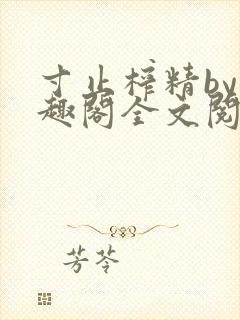 寸止榨精by
趣阁全文阅
芳苓